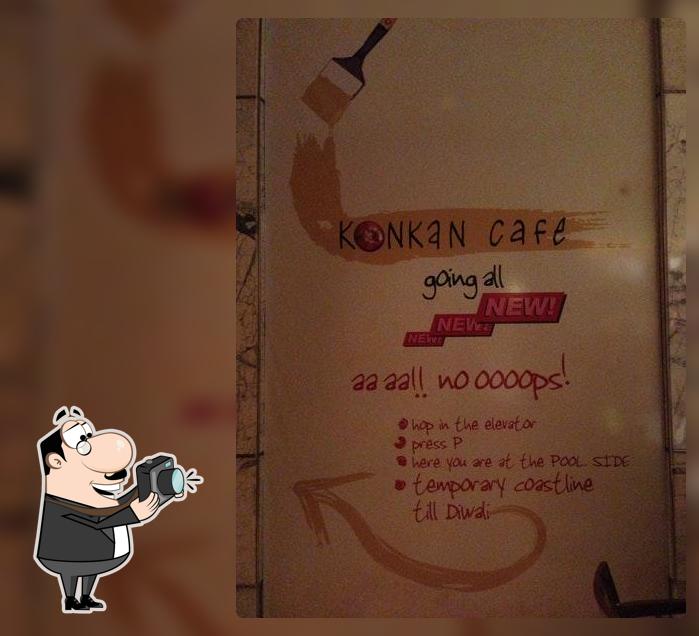 KONKAN cafe
going all
NEW! NEW! NEW!
aa aa!! no oooops!
hop in the elevator
press P
here you are at the POOL SIDE
temporary coastline
till Diwali